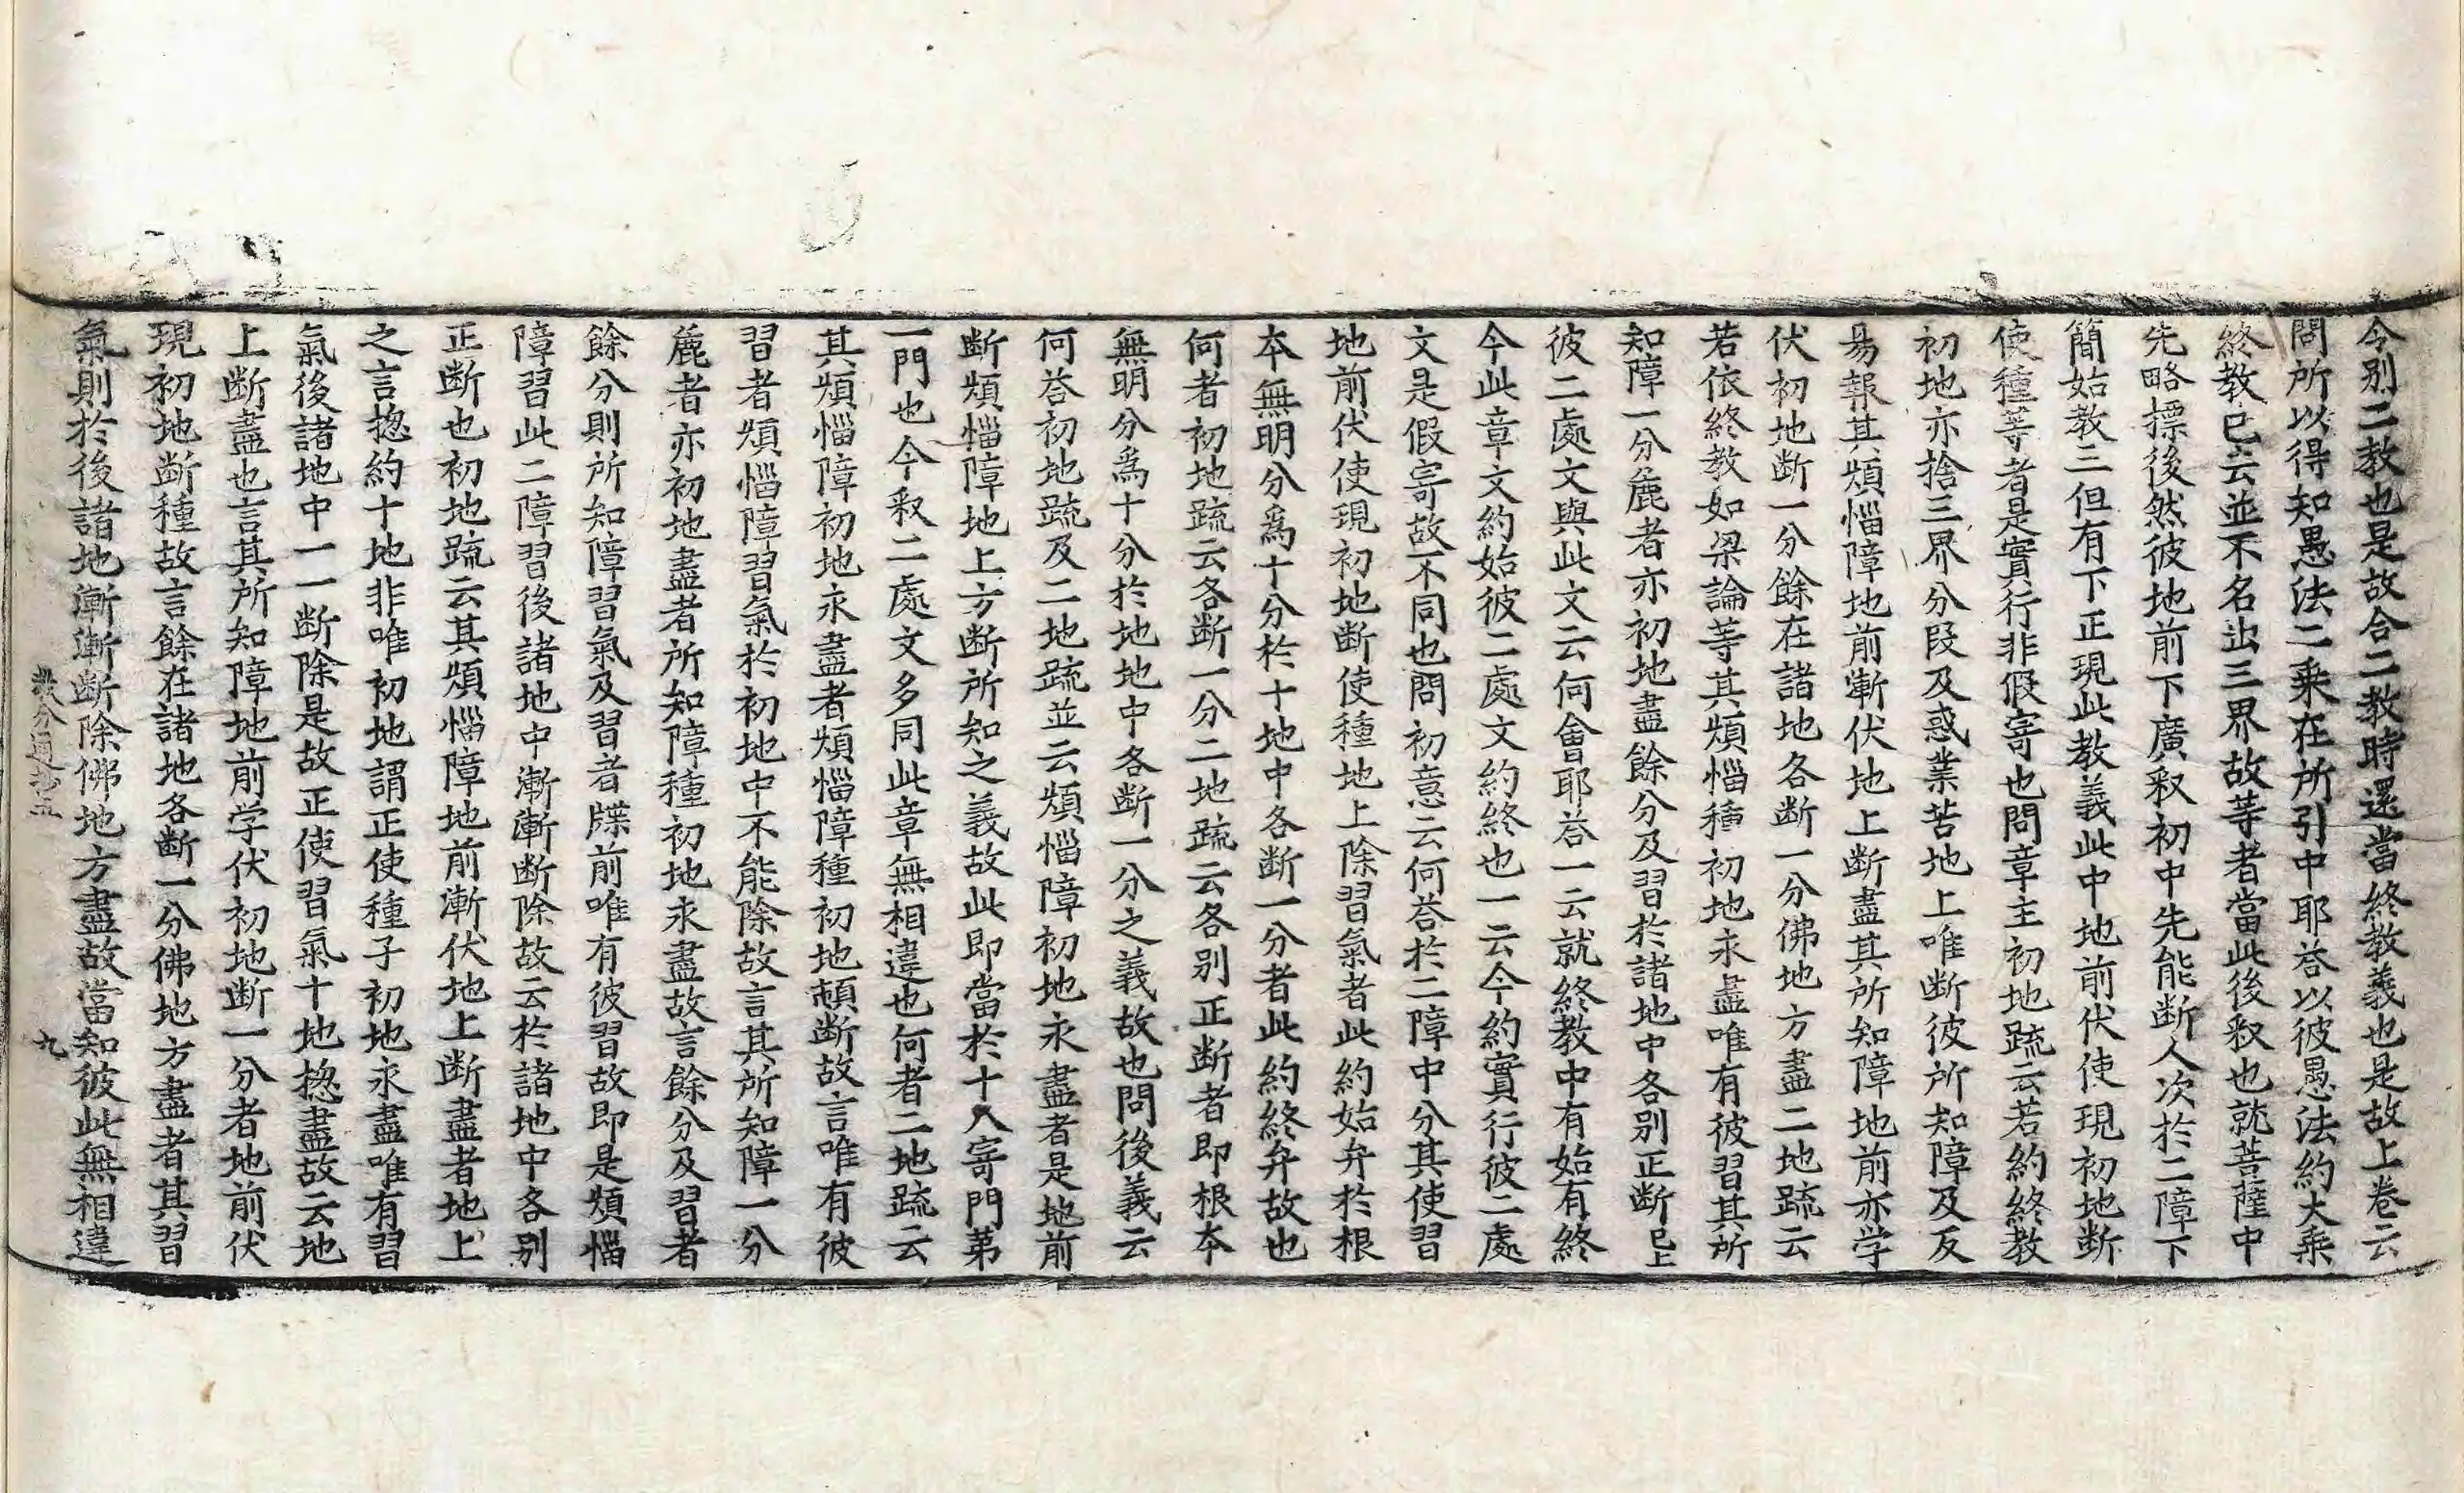 令別二教也是故合二教時還當終教義也是故上卷云
問所以得知愚法二乘在所引中耶荅以彼愚法約大乘
終教已云並不名出三界故等者當此後釈也就菩薩中
先略摽後然彼地前下廣釈初中先能断人次於二障下
簡始教三但有下正現此教義此中地前伏使現初地断
使種等者是實行非假寄也問章主初地疏云若約終教
初地亦捨三界分段及惑業苦地上唯断彼所知障及反
易報其煩惱障地前漸伏地上断盡其所知障地前亦学
伏初地断一分餘在諸地各断一分佛地方盡二地疏云
若依終教如梁論等其煩惱種初地永盡唯有彼習其所
知障一分麁者亦初地盡餘分及習於諸地中各別正断已上
彼二處文與此文云何會耶荅一云就終教中有始有終
今此章文約始彼二處文約終也一云今約實行彼二處
文是假寄故不同也問初意云何荅於二障中分其使習
地前伏使現初地断使種地上除習氣者此約始弁於根
本無明分爲十分於十地中各断一分者此約終弁故也
何者初地疏云各断一分二地疏云各別正断者即根本
無明分爲十分於地地中各断一分之義故也問後義云
何荅初地疏及二地疏並云煩惱障初地永盡者是地前
断煩惱障地上方断所知之義故此即當於十八寄門苐
一門也今釈二處文多同此章無相違也何者二地疏云
其煩惱障初地永盡者煩惱障種初地頓断故言唯有彼
習者煩惱障習氣於初地中不能除故言其所知障一分
麁者亦初地盡者所知障種初地永盡故言餘分及習者
餘分則所知障習氣及習者牒前唯有彼習故即是煩惱
障習此二障習後諸地中漸漸断除故云於諸地中各別
正断也初地疏云其煩惱障地前漸伏地上断盡者地上
之言揔約十地非唯初地謂正使種子初地永盡唯有習
氣後諸地中一一断除是故正使習氣十地揔盡故云地
上断盡也言其所知障地前学伏初地断一分者地前伏
現初地断種故言餘在諸地各断一分佛地方盡者其習
氣則於後諸地漸漸断除佛地方盡故當知彼此無相違
教分通抄五 九